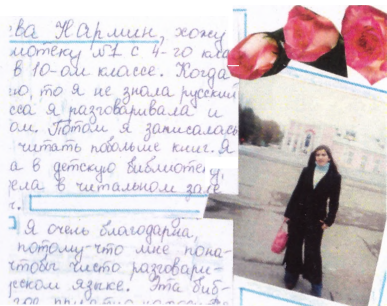 ва Нармин, хожу
отеку №1 с 4-го кла
в 10-ом классе. Когда
то я не знала русский
сса я разговаривала и
ом. Потом я записалась
читать побольше книг. Я
а в детскую библиотеку,
ела в читальном зале
Я очень благодарна,
потому что мне пона-
чтобы чисто разговари-
сском языке. Эта биб-